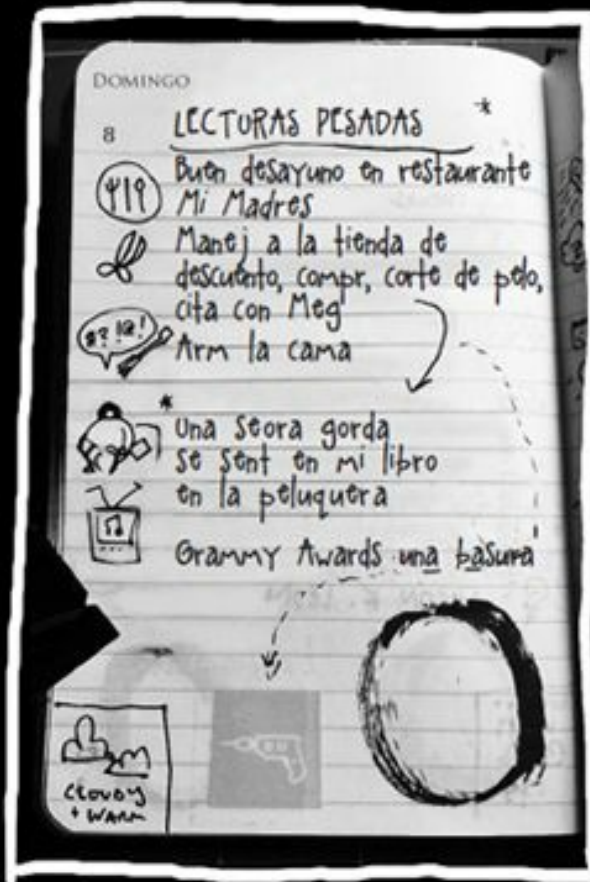 DOMINGO
8
LECTURAS PESADAS *
Buen desayuno en restaurante
Mi Madres
Manej a la tienda de
descuento, compr, corte de pelo,
cita con Meg
#? !@!
Arm la cama
*
Una seora gorda
se sent en mi libro
en la peluquera
Grammy Awards una basura
CLOUDY
+ WARM